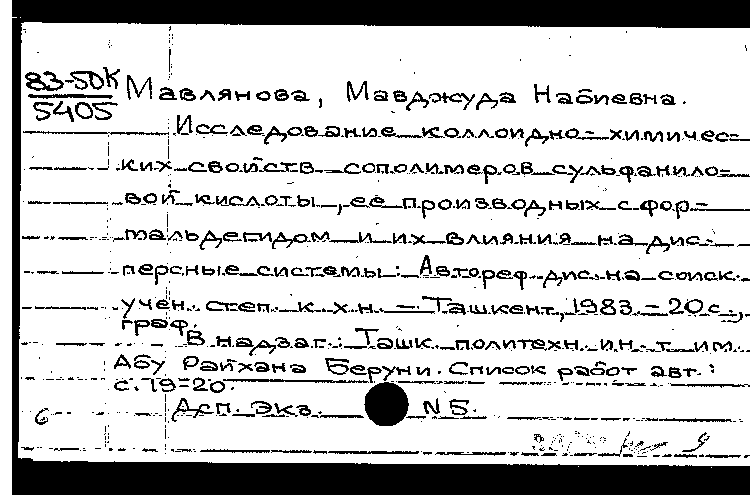 83-5DK
5405
Мавлянова, Мавджуда Набиевна.
Исследование коллоидно-химичес-
ких свойств сополимеров сульфанило-
вой кислоты, её производных с фор-
мальдегидом и их влияния на дис-
персные системы: Автореф. дис. на соиск.
учен. степ. к.х.н. — Ташкент, 1983. - 20 с.,
граф.
В надзаг.: Ташк. политехн. ин-т им.
Абу Райхана Беруни. Список работ авт.:
с. 19-20.
Асп. Экз. N 5.
6